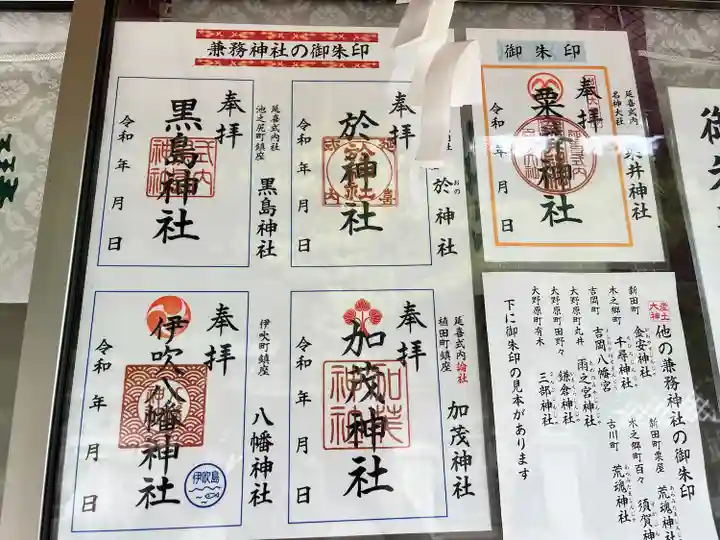 兼務神社の御朱印
奉拝
黒島神社
令和 年 月 日
延喜式内社
池之尻町鎮座
黒島神社
奉拝
於神社
令和 年 月 日
於神社
おの
奉拝
伊吹八幡神社
令和 年 月 日
伊吹町鎮座
八幡神社
伊吹島
奉拝
加茂神社
令和 年 月 日
延喜式内論社
植田町鎮座
加茂神社
御朱印
奉拝
粟井神社
令和 年 月 日
延喜式内
名神大社
粟井神社
産土大神
他の兼務神社の御朱印
新田町 金安神社
木之郷町 千尋神社
吉岡町 吉岡八幡宮
大野原町丸井 雨之宮神社
大野原町田野々 鎌倉神社
大野原町有木 三部神社
新田町粟屋 荒魂神社
木之郷町百々 須賀神
古川町 荒魂神社
下に御朱印の見本があります